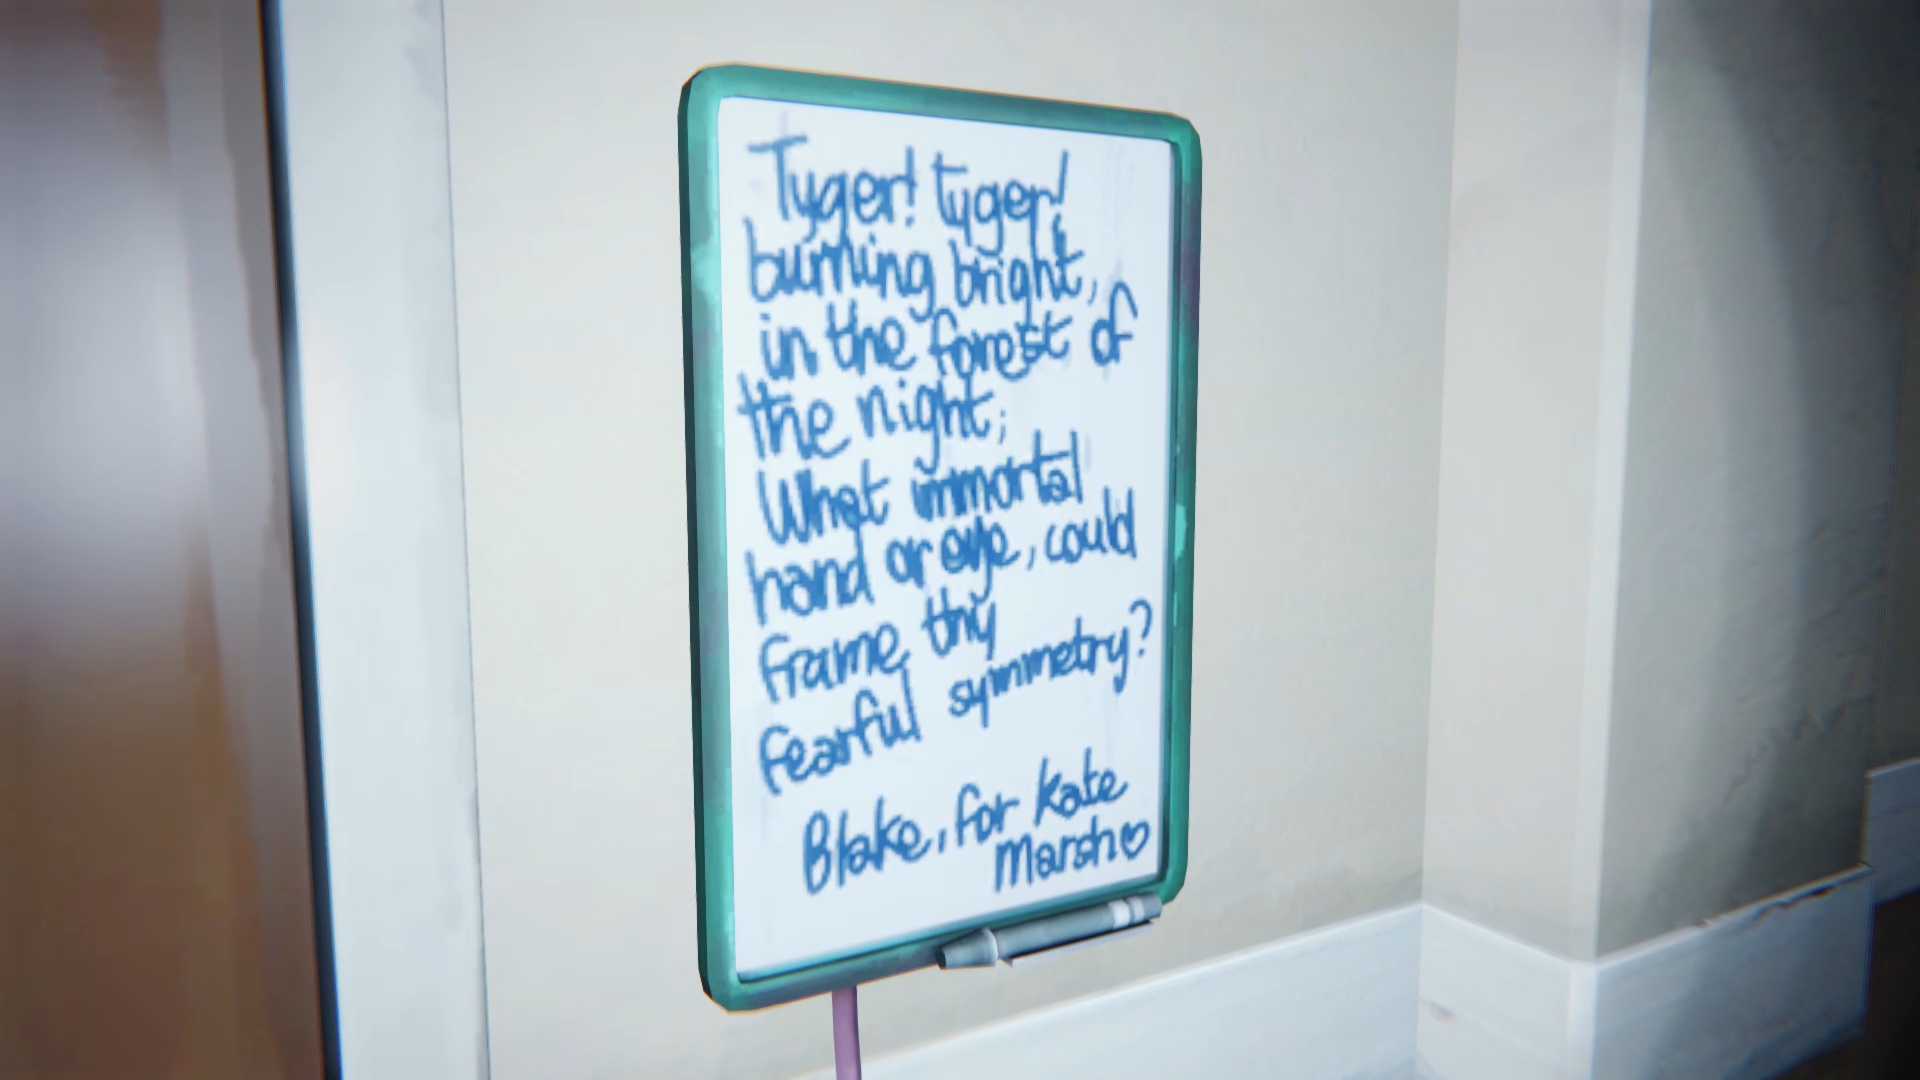 Tyger! tyger!
burning bright,
in the forest of
the night;
What immortal
hand or eye, could
frame thy
fearful symmetry?
Blake, for Kate
Marsh♡